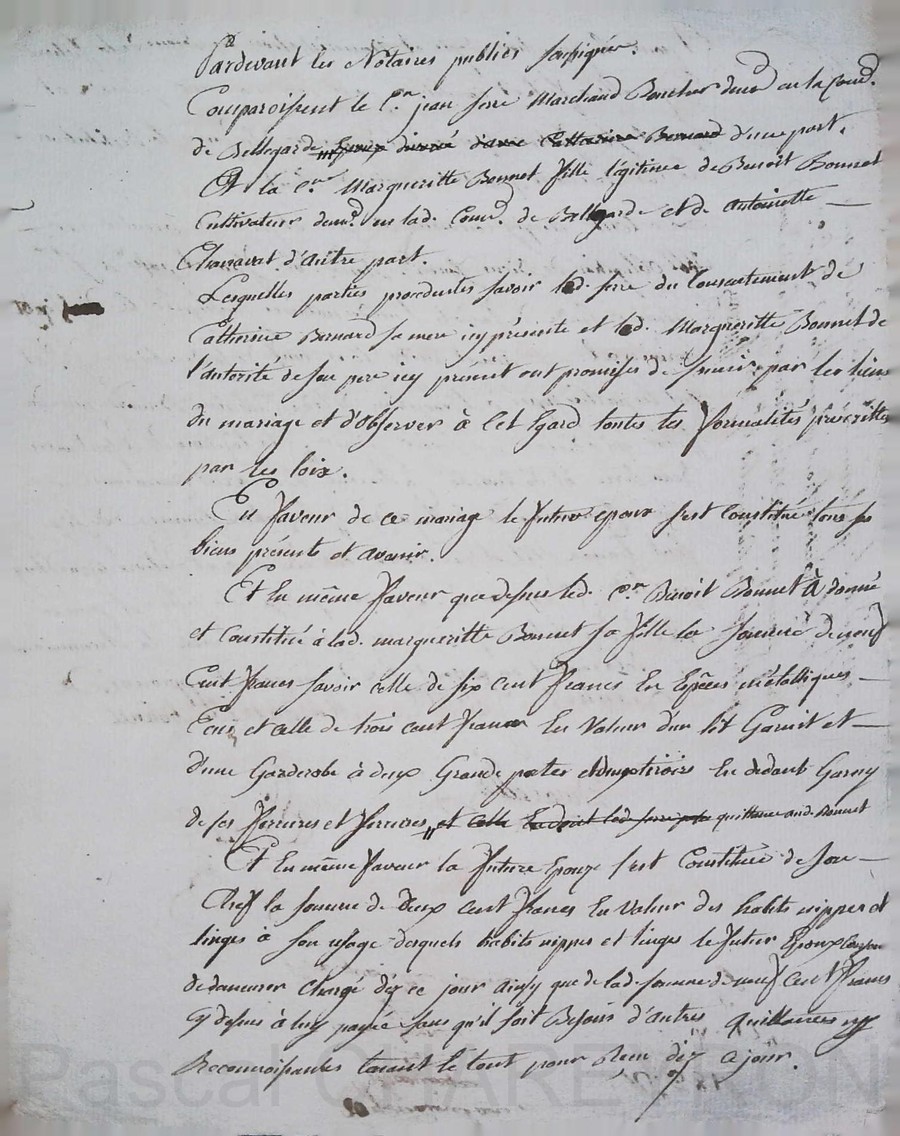 Pardevant les Notaires publics soussignés.
Comparoissent le C.en jean serre Marchand Boucher dem.t en la Com.e
de Bellegarde d'une part.
Et la C.ne Margueritte Bonnet fille légitime de Benoit Bonnet
Cultivateur dem.t en lad. Com.e de Bellegarde et de antoinette
d'autre part.
Lesquelles parties procedantes savoir led. serre du Consentement de
Catherine Bernard sa mere icy présente et lad. Margueritte Bonnet de
l'autorité de son pere icy présent ont promises de s'unir par les liens
du mariage et d'observer à cet Egard toutes les formalités prescrittes
par les loix.
En faveur de ce mariage le futur epoux s'est Constitué tous ses
biens présents et avenir.
Et En même faveur que dessus led. C.en Benoit Bonnet à donné
et Constitué à lad. margueritte Bonnet sa fille la somme de neuf
Cent francs savoir celle de six cent francs En Espèces métalliques
Ecus et celle de trois cent francs En Valeur d'un lit Garnit et
d'une Garderobe à deux Grande porte et deux tiroirs En dedant Garny
de ses serrures et ferrures et celle
Et En même faveur la future Epouze s'est Constituée de son
Chef la somme de Deux cent francs En Valeur des habits nippes et
linges à son usage desquels habits nippes et linges le futur Epoux
de demeurer Chargé déz ce jour ainsy que de lad. somme de neuf Cent francs
cy dessus à luy payée sans qu'il soit Besoin d'autres quittances ny
Reconnoissances tenant le tout pour Reçu déz ce jour.
Pascal CHAREYRON